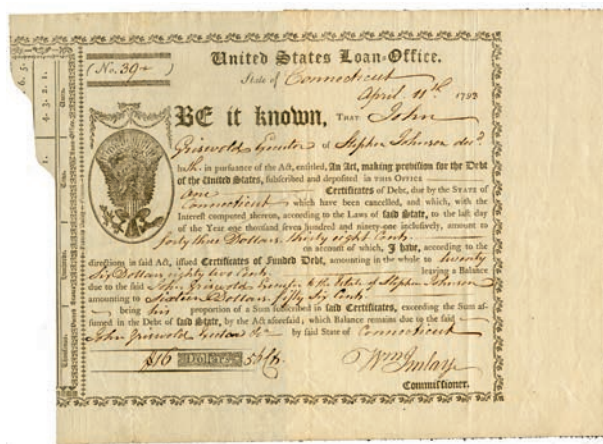 United States Loan-Office.
(No. 394)
State of Connecticut
April 11th 1793
BE it known, THAT John
Griswold Executor of Stephen Johnson decd.
hath in pursuance of the Act, entitled, An Act, making provision for the Debt
of the United States, subscribed and deposited in THIS OFFICE
one Certificates of Debt, due by the STATE of
Connecticut which have been cancelled, and which, with the
Interest computed thereon, according to the Laws of said State, to the last day
of the Year one thousand seven hundred and ninety-one inclusively, amount to
forty three Dollars. thirty eight Cents.
on account of which, I have, according to the
directions in said Act, issued Certificates of Funded Debt, amounting in the whole to twenty
Six Dollars eighty two Cents. leaving a Balance
due to the said John Griswold Executor to the Estate of Stephen Johnson
amounting to Sixteen Dollars. fifty Six Cents.
being his proportion of a Sum subscribed in said Certificates, exceeding the Sum as-
sumed in the Debt of said State, by the Act aforesaid, which Balance remains due to the said
John Griswold Executor &c by said State of Connecticut
$16 Dollars 56 Cts.
Wm Imlay
Commissioner.